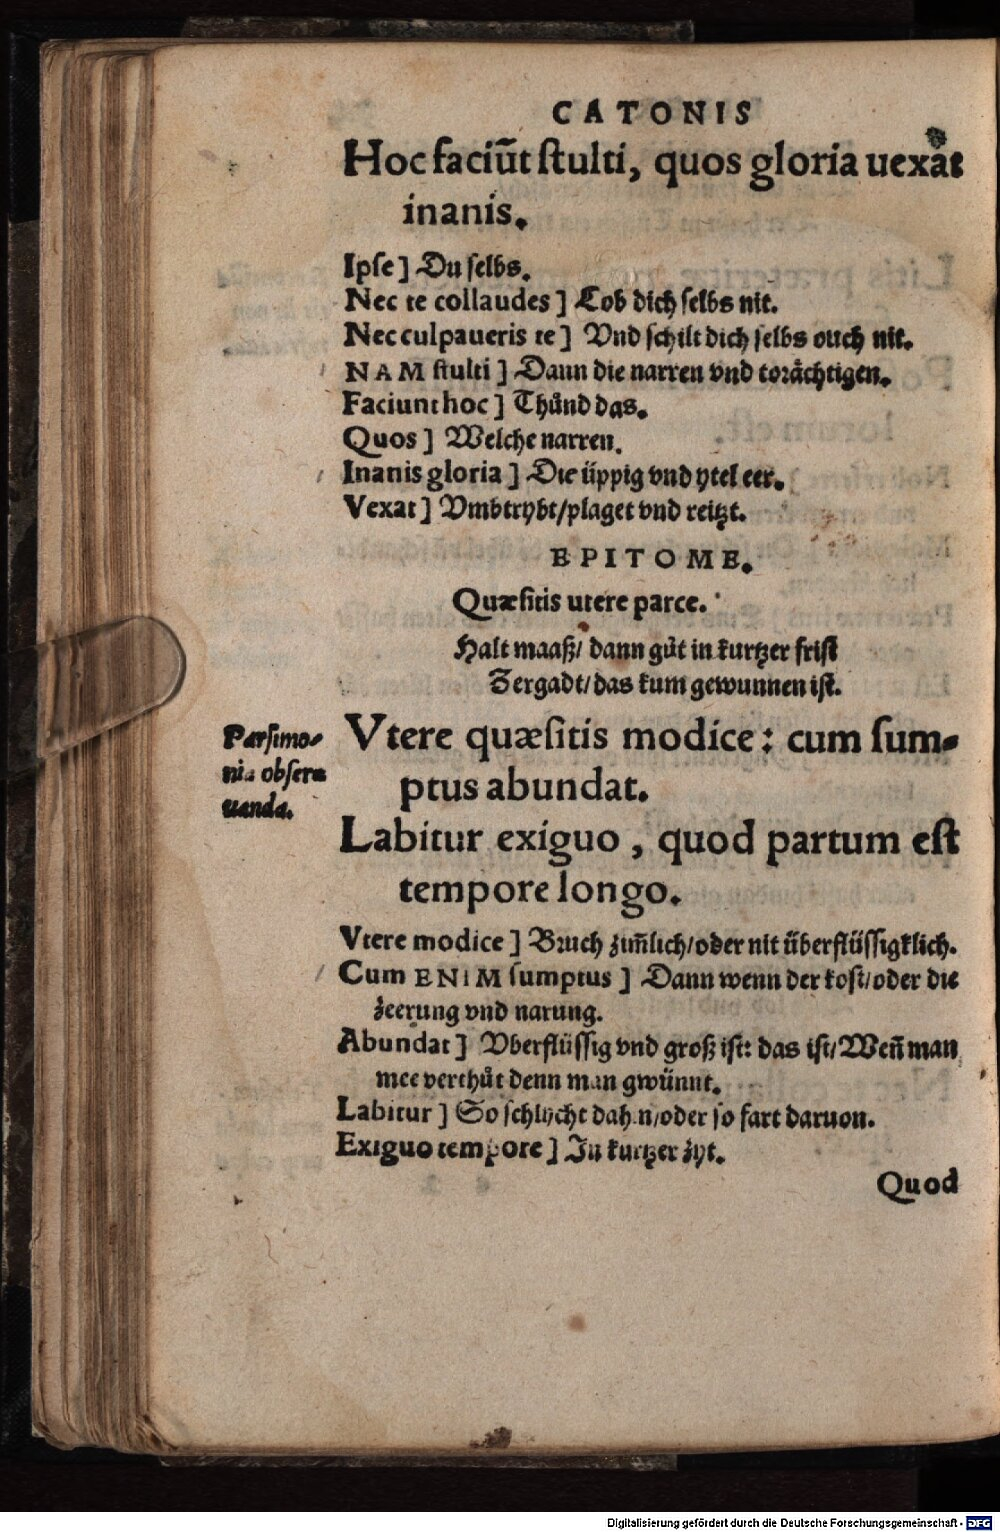 CATONIS
Hoc faciūt ſtulti, quos gloria uexat
inanis.
Ipſe] Du ſelbs.
Nec te collaudes] Lob dich ſelbs nit.
Nec culpaueris te] Vnd ſchilt dich ſelbs ouch nit.
NAM ſtulti] Dann die narren vnd torächtigen.
Faciunt hoc] Thůnd das.
Quos] Welche narren.
Inanis gloria] Die üppig vnd ytel eer.
Vexat] Vmbtrybt/plaget vnd reitzt.
EPITOME.
Quæſitis utere parce.
Halt maaß/ dann gůt in kurtzer friſt
Zergadt/das kum gewunnen iſt.
Parſimo-
nia obſer-
uanda.
Vtere quæſitis modice: cum ſum-
ptus abundat.
Labitur exiguo, quod partum eſt
tempore longo.
Vtere modice] Bruch zim̃lich/oder nit überflüſſigklich.
Cum ENIM ſumptus] Dann wenn der koſt/oder die
zeerung vnd narung.
Abundat] Vberflüſſig vnd groß iſt: das iſt/Weñ man
mee verthůt denn man gwünnt.
Labitur] So ſchlycht dahin/oder ſo fart daruon.
Exiguo tempore] In kurtzer zyt.
Quod
Digitalisierung gefördert durch die Deutsche Forschungsgemeinschaft - DFG